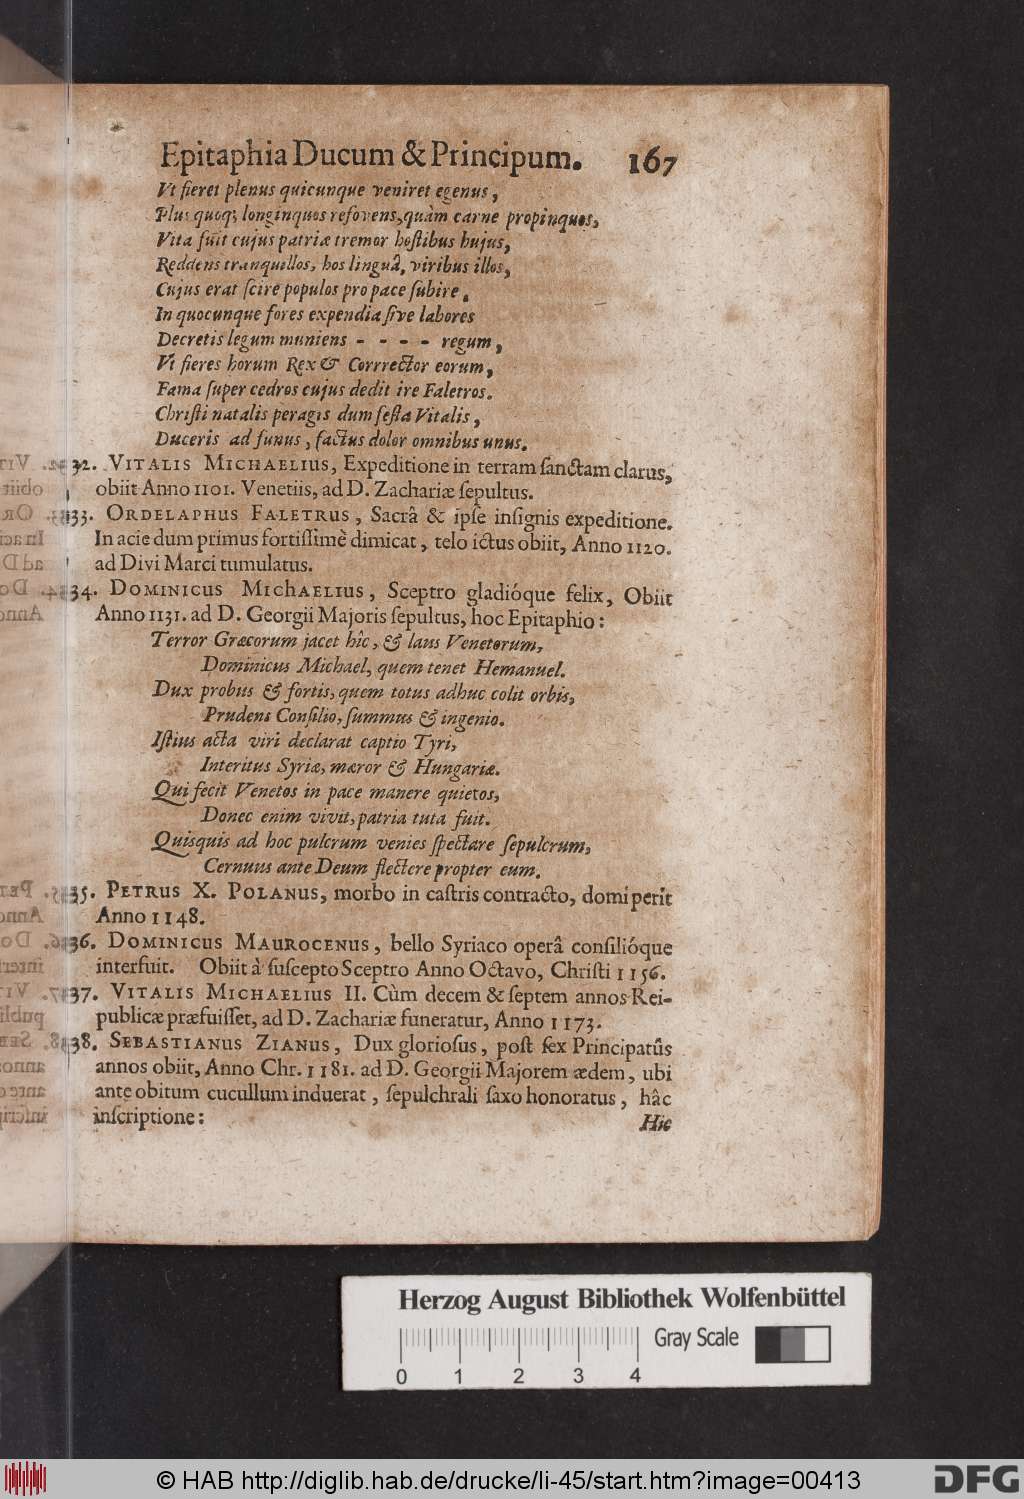 Epitaphia Ducum & Principum. 167
Vt fieret plenus quicunque veniret egenus,
Plus quoq; longinquos refovens, quàm carne propinquos,
Vita fuit cujus patriæ tremor hostibus hujus,
Reddens tranquillos, hos linguâ, viribus illos,
Cujus erat scire populos pro pace subire,
In quocunque fores expendia sive labores
Decretis legum muniens - - - - regum,
Vt fieres horum Rex & Corrrector eorum,
Fama super cedros cujus dedit ire Faletros.
Christi natalis peragis dum festa Vitalis,
Duceris ad funus, factus dolor omnibus unus.
32. VITALIS MICHAELIUS, Expeditione in terram sanctam clarus,
obiit Anno 1101. Venetiis, ad D. Zachariæ sepultus.
33. ORDELAPHUS FALETRUS, Sacrâ & ipse insignis expeditione.
In acie dum primus fortissimè dimicat, telo ictus obiit, Anno 1120.
ad Divi Marci tumulatus.
34. DOMINICUS MICHAELIUS, Sceptro gladióque felix, Obiit
Anno 1131. ad D. Georgii Majoris sepultus, hoc Epitaphio:
Terror Græcorum jacet hîc, & laus Venetorum,
Dominicus Michael, quem tenet Hemanuel.
Dux probus & fortis, quem totus adhuc colit orbis,
Prudens Consilio, summus & ingenio.
Istius acta viri declarat captio Tyri,
Interitus Syriæ, mæror & Hungariæ.
Qui fecit Venetos in pace manere quietos,
Donec enim vivit, patria tuta fuit.
Quisquis ad hoc pulcrum venies spectare sepulcrum,
Cernuus ante Deum flectere propter eum.
35. PETRUS X. POLANUS, morbo in castris contracto, domi perit
Anno 1148.
36. DOMINICUS MAUROCENUS, bello Syriaco operâ consilióque
interfuit. Obiit à suscepto Sceptro Anno Octavo, Christi 1156.
37. VITALIS MICHAELIUS II. Cùm decem & septem annos Rei-
publicæ præfuisset, ad D. Zachariæ funeratur, Anno 1173.
38. SEBASTIANUS ZIANUS, Dux gloriosus, post sex Principatûs
annos obiit, Anno Chr. 1181. ad D. Georgii Majorem ædem, ubi
ante obitum cucullum induerat, sepulchrali saxo honoratus, hâc
inscriptione:
Hic
Herzog August Bibliothek Wolfenbüttel
Gray Scale
0 1 2 3 4
© HAB http://diglib.hab.de/drucke/li-45/start.htm?image=00413
DFG